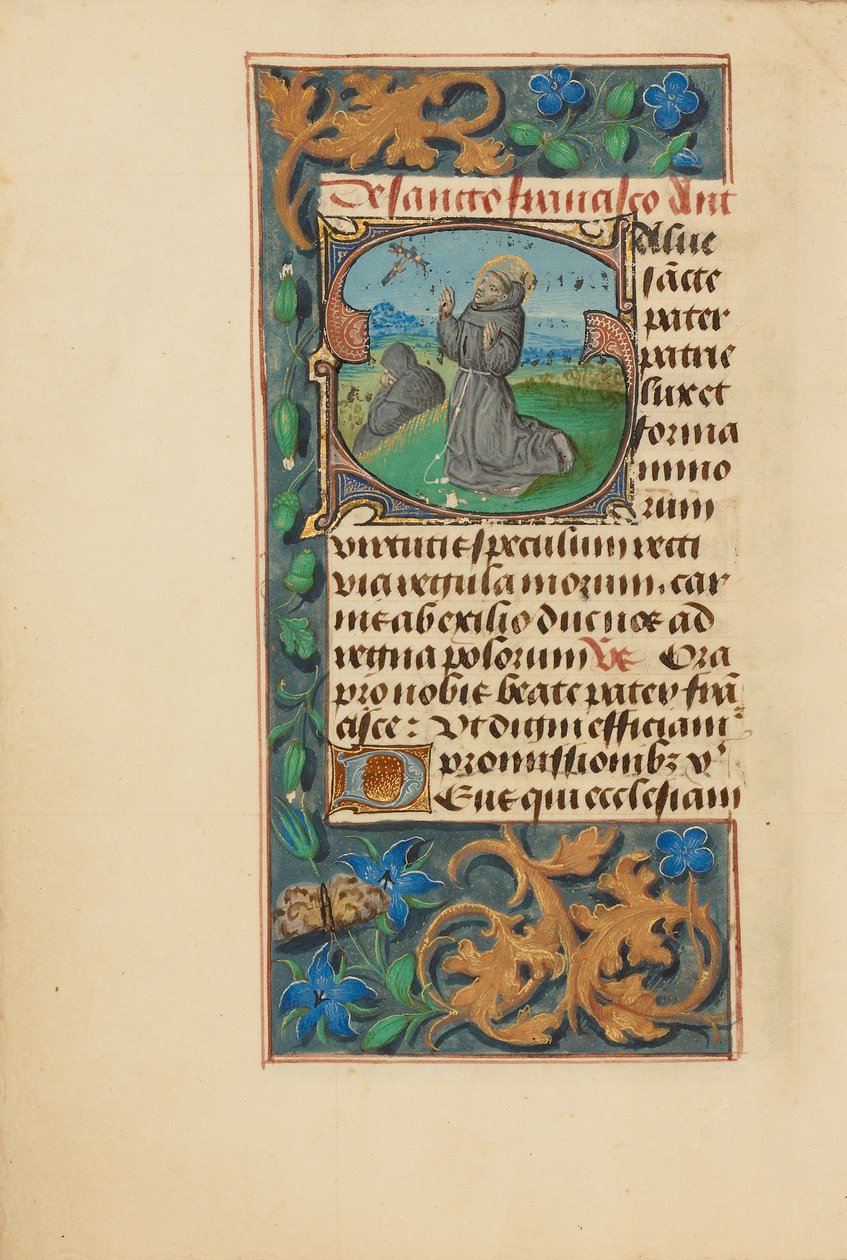 De sancto francisco Ant
alue
sācte
pater
patrie
lux et
forma
mino
rum
virtutis speculum recti
via regula morum. car
nis ab exilio duc nos ad
regna polorum Vs Ora
pro nobis beate pater frā
cisce: Vt digni efficiam᷑
promissionibꝫ
Eus qui ecclesiam